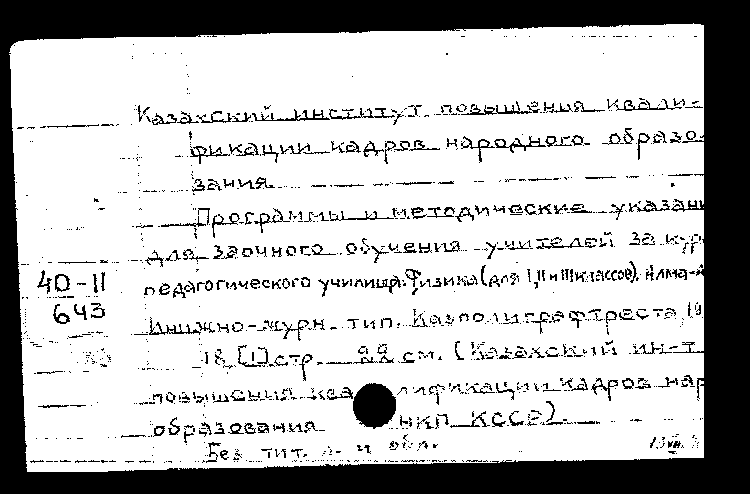 Казахский институт повышения квали-
фикации кадров народного образо-
вания.
Программы и методические указани
для заочного обучения учителей за кур
педагогического училища. Физика (для I, II и III классов). Алма-А
40-11
643
Книжно-журн. тип. Казполиграфтреста, 19
18 [1] стр. 22 см. (Казахский ин-т
повышения квалификации кадров нар
образования НКП КССР).
Без тит. л. и обл.